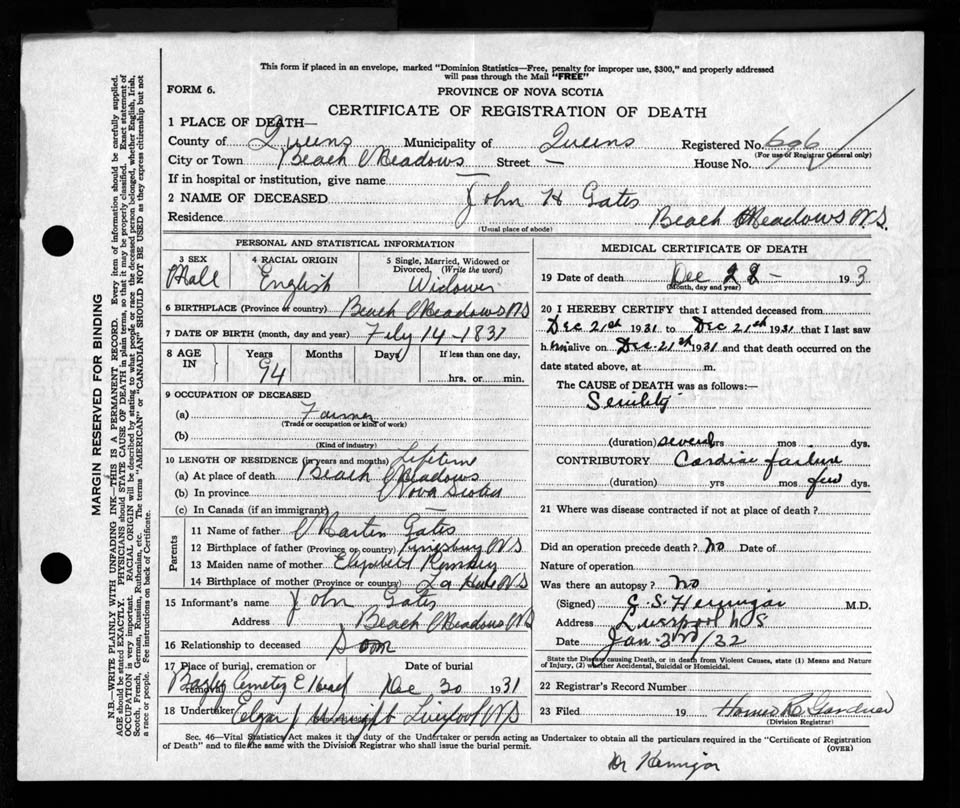 This form if placed in an envelope, marked "Dominion Statistics—Free, penalty for improper use, $300," and properly addressed
will pass through the Mail "FREE"
FORM 6.
PROVINCE OF NOVA SCOTIA
CERTIFICATE OF REGISTRATION OF DEATH
1 PLACE OF DEATH—
County of Queens Municipality of Queens Registered No. 696
(For use of Registrar General only)
City or Town Beach Meadows Street — House No.
If in hospital or institution, give name —
2 NAME OF DECEASED John H Gates
Residence Beach Meadows N.S.
(Usual place of abode)
PERSONAL AND STATISTICAL INFORMATION
3 SEX 4 RACIAL ORIGIN 5 Single, Married, Widowed or
Divorced, (Write the word)
Male English Widower
6 BIRTHPLACE (Province or country) Beach Meadows NS
7 DATE OF BIRTH (month, day and year) 14-1837
8 AGE IN Years Months Days If less than one day,
94 hrs. or min.
9 OCCUPATION OF DECEASED
(a) Farmer
(Trade or occupation or kind of work)
(b)
(Kind of industry)
10 LENGTH OF RESIDENCE (in years and months) Lifetime
(a) At place of death Beach Meadows
(b) In province Nova Scotia
(c) In Canada (if an immigrant) —
Parents
11 Name of father Martin Gates
12 Birthplace of father (Province or country) NS
13 Maiden name of mother
14 Birthplace of mother (Province or country) La Have NS
15 Informant's name John Gates
Address Beach Meadows NS
16 Relationship to deceased Son
17 Place of burial, cremation or removal Date of burial
Cemetry Dec 30 1931
18 Undertaker Liverpool NS
MEDICAL CERTIFICATE OF DEATH
19 Date of death Dec 22 - 193
(Month, day and year)
20 I HEREBY CERTIFY that I attended deceased from
Dec 21st 1931 to Dec 21st 1931 that I last saw
him alive on Dec. 21st 1931 and that death occurred on the
date stated above, at m.
The CAUSE of DEATH was as follows:—
Senility
(duration) several yrs mos dys.
CONTRIBUTORY Cardiac failure
(duration) yrs mos few dys.
21 Where was disease contracted if not at place of death?
Did an operation precede death? no Date of
Nature of operation
Was there an autopsy? no
(Signed) M.D.
Address Liverpool NS
Date Jan 3rd/32
State the Disease causing Death, or in death from Violent Causes, state (1) Means and Nature
of Injury, (2) whether Accidental, Suicidal or Homicidal.
22 Registrar's Record Number
23 Filed 19 Gardner
(Division Registrar)
Sec. 46—Vital Statistics Act makes it the duty of the Undertaker or person acting as Undertaker to obtain all the particulars required in the "Certificate of Registration
of Death" and to file the same with the Division Registrar who shall issue the burial permit. (OVER)
Dr
MARGIN RESERVED FOR BINDING
N.B.—WRITE PLAINLY WITH UNFADING INK—THIS IS A PERMANENT RECORD. Every item of information should be carefully supplied.
AGE should be stated EXACTLY. PHYSICIANS should STATE CAUSE OF DEATH in plain terms, so that it may be properly classified. Exact statement of
OCCUPATION is very important. RACIAL ORIGIN will be described by stating to what people or race the deceased person belonged, whether English, Irish,
Scotch, French, German, Russian, Ruthenian, etc. The terms "AMERICAN" or "CANADIAN" SHOULD NOT BE USED as they express citizenship but not
a race or people. See instructions on back of Certificate.